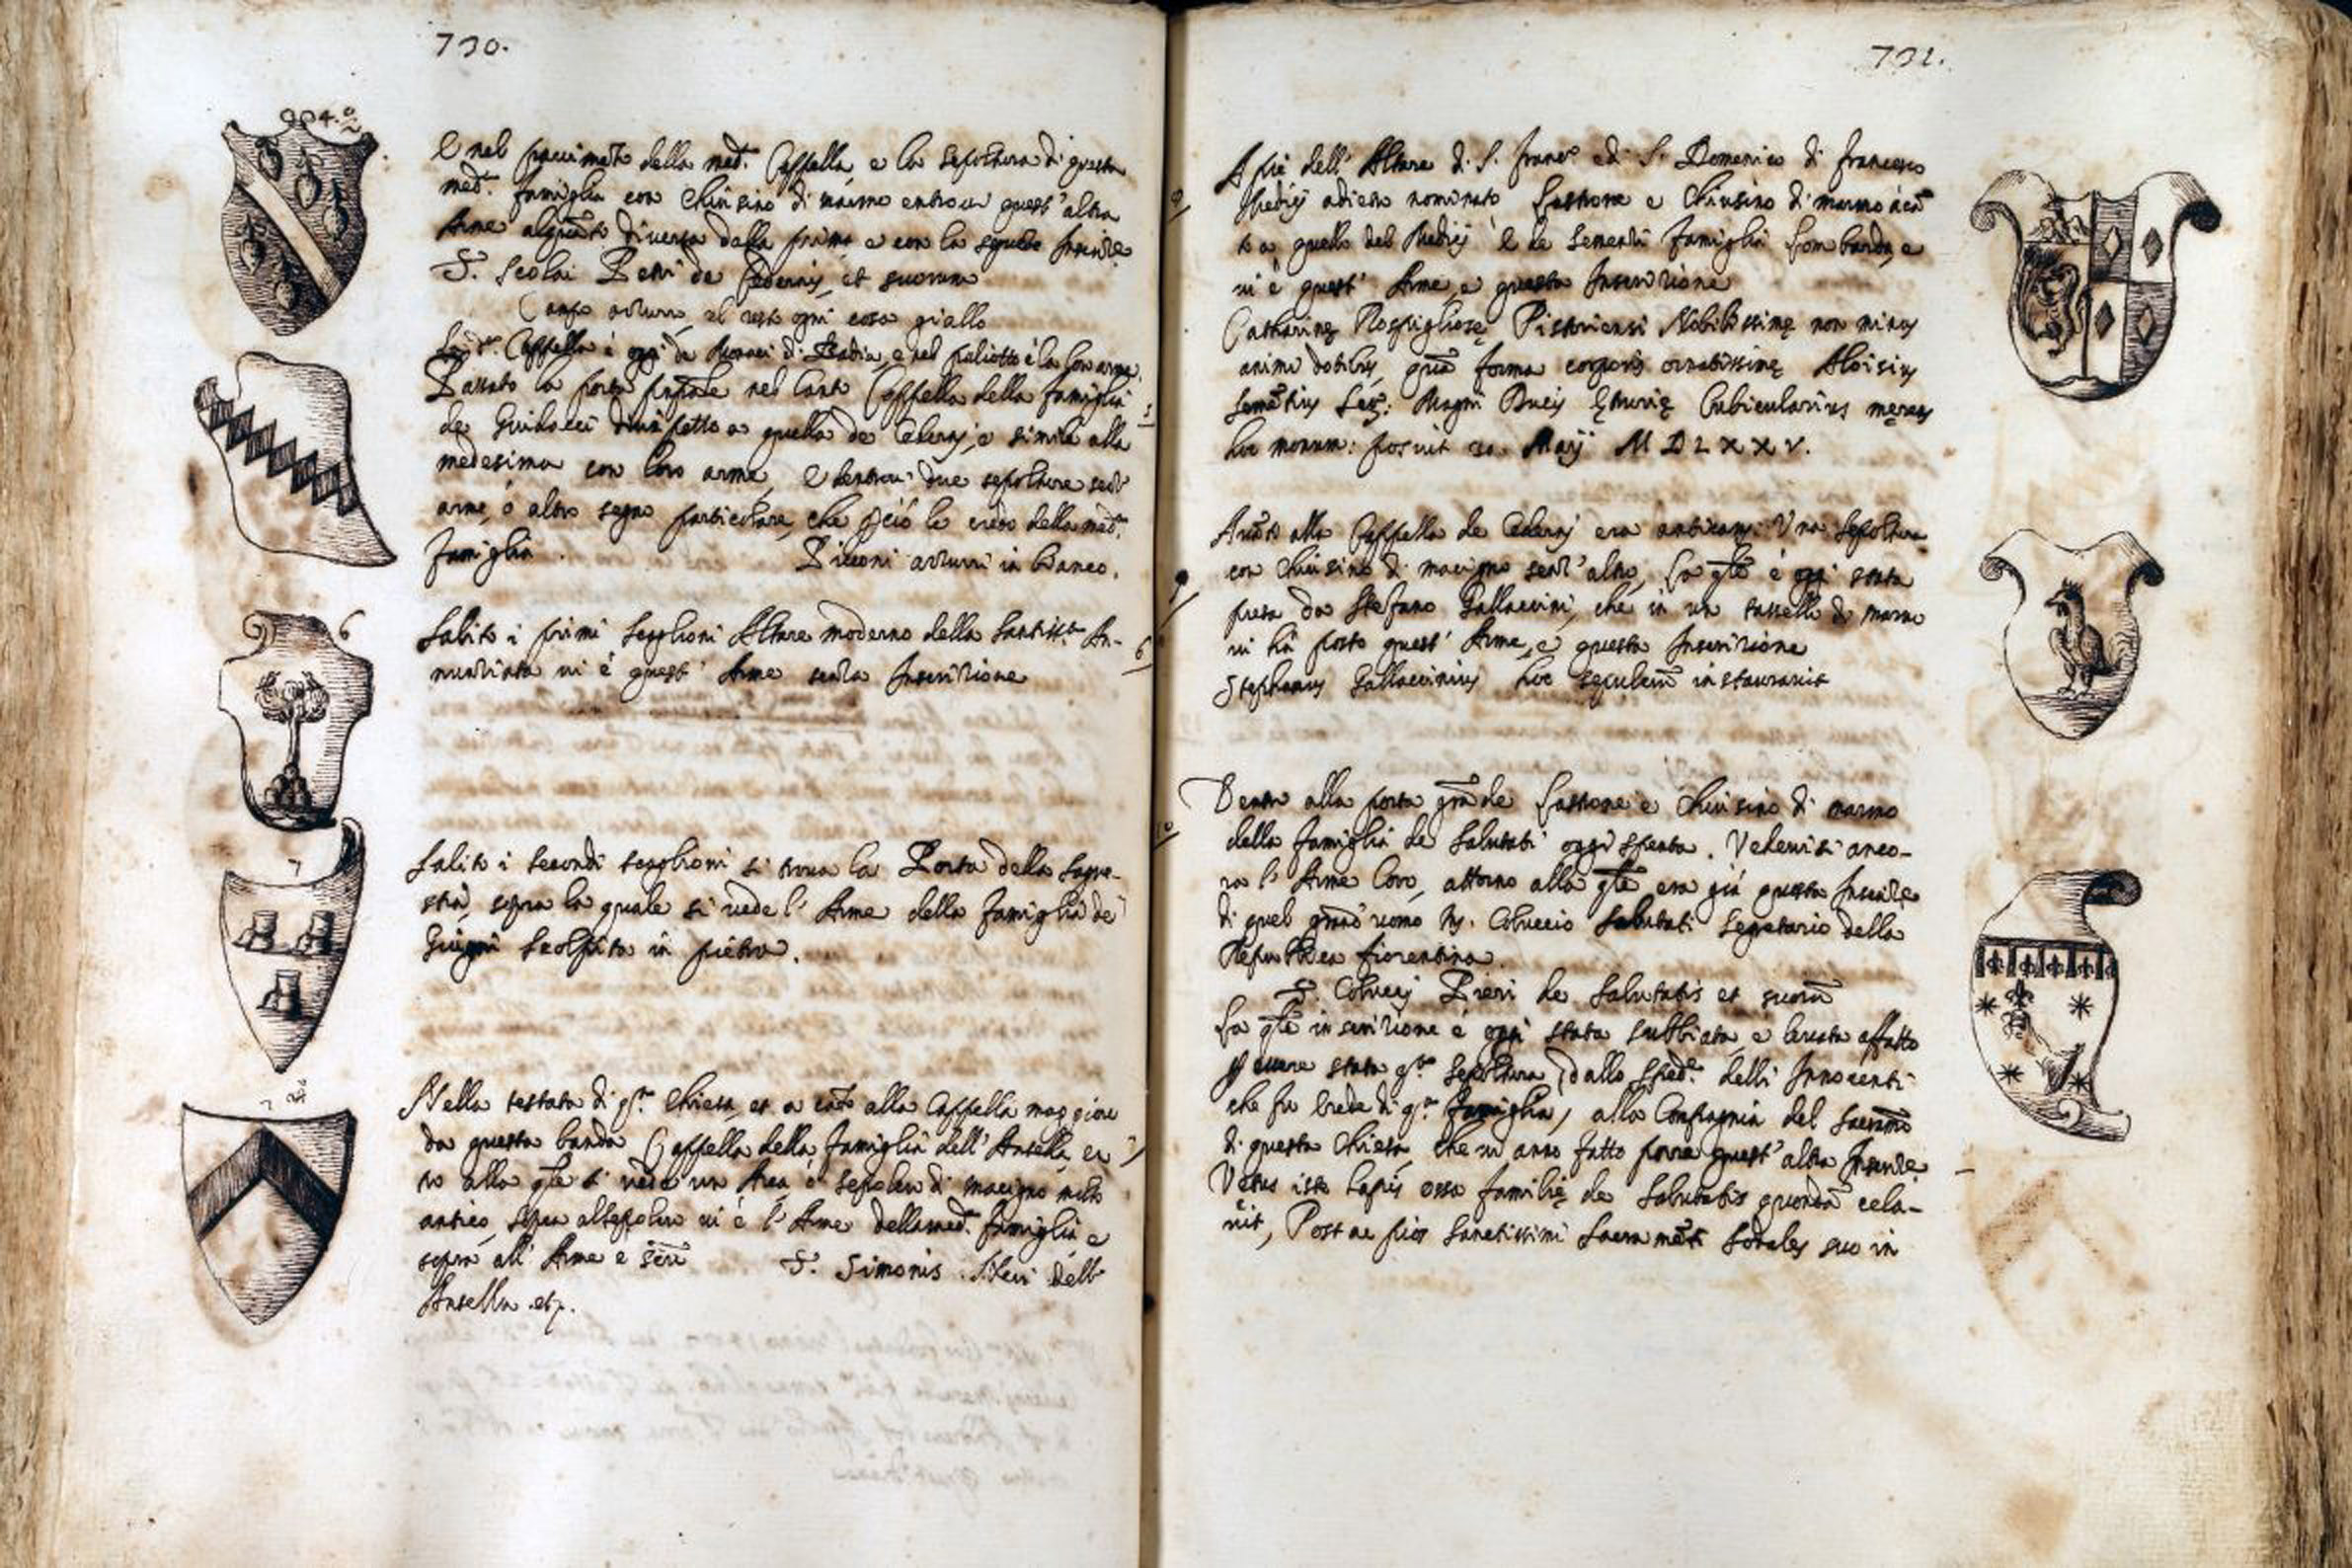 730.
E nel pavimento della med.ª Cappella, e la sepoltura di questa
med.ª famiglia con chiusino di marmo entrovi quest'altra
Arme alquāto diversa dalla prima e con la seguēte Inscriz.e
S. Scolai Petri de Cedernis, et suorum
Campo azzurro, el resto ogni cosa giallo
Cappella è oggi de Monaci di Badia, e nel paliotto è la lor arme.
Passato la porta prīpale nel Canto Cappella della famiglia
de Guiducci dirīpetto a quella de Cederni, e simile alla
medesima con loro arme, e dentrovi due sepolture senz'
arme, o altro segno particolare, che p ciò le credo della med.ª
famiglia. Picconi azzurri in bianco.
Salito i primi scaglioni Altare moderno della Santiss.ª An-
nunziata vi è quest' Arme senza Inscrizione
6
Salito i secondi scaglioni si trova la Porta della Sagre-
stia, sopra la quale si vede l' Arme della famiglia de
Giugni scolpita in pietra.
7
Nella testata di q.ta Chiesa, et a cāto alla Cappella maggiore
da questa banda Cappella della famiglia dell' Antella, en
tro alla q̄le si vede un Arca o sepolcro di macigno molto
antico, sopra al sepolcro vi è l' Arme della med.ª famiglia e
sopra all' Arme è scrō S. Simonis Neri dell'
Antella etz.
731.
A piè dell' Altare di S. Franc.o e di S. Domenico di Francesco
Medici adietro nominato lastrone e chiusino di marmo acā
to a quello del Medici è de Sementi famiglia Lombarda, e
vi è quest' Arme, e questa Inscrizione
Catharinę Rospigliosę Pistoriensi Nobilissimę non minus
animi dotibus, quā forma corporis ornatissimę Aloisius
Semētius Ser: Magni Ducis Etrurię Cubicularius merens
hoc monum: posuit 30. Maij M D L X X V.
Avāti alla Cappella de Cederni era anticam: Una sepoltura
con chiusino di macigno senz'altro, la q̄le è oggi stata
presa da Stefano Gallaccini, che in un tassello di marmo
vi ha posto quest' Arme, e questa Inscrizione
Stephanus Gallaccinius hoc sepulcrū instauravit
Dentro alla porta grāde lastrone e chiusino di marmo
della famiglia de Salutati oggi spenta. Vedevisi anco-
ra l' Arme loro, attorno alla q̄le era già questa Inscriz.e
di quel grād'uomo M. Coluccio Salutati Segretario della
Republica fiorentina.
S. Colucci Pieri de Salutatis et suorū
La q̄le inscrizione è oggi stata subbiata, e levata affatto
p essere stata q.ta sepoltura, dallo Sped.e delli Innocenti
che fu erede di q.ta famiglia, alla Compagnia del Sacramō
di questa Chiesa, che vi anno fatto porre quest' altra Inscriz.e
Vetus iste lapis ossa familię de Salutatis quondā cela-
vit, Post ac pios Sanctissimi Sacramēti Sodales suo in